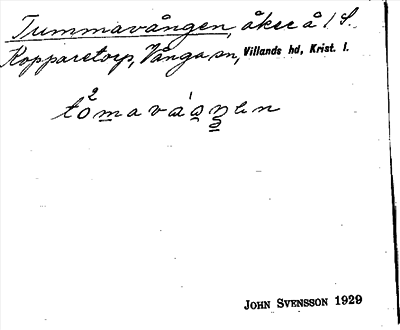 Tummavången, åker å 1 S.
Kopparetorp, Vånga sn, Villands hd, Krist. l.
JOHN SVENSSON 1929